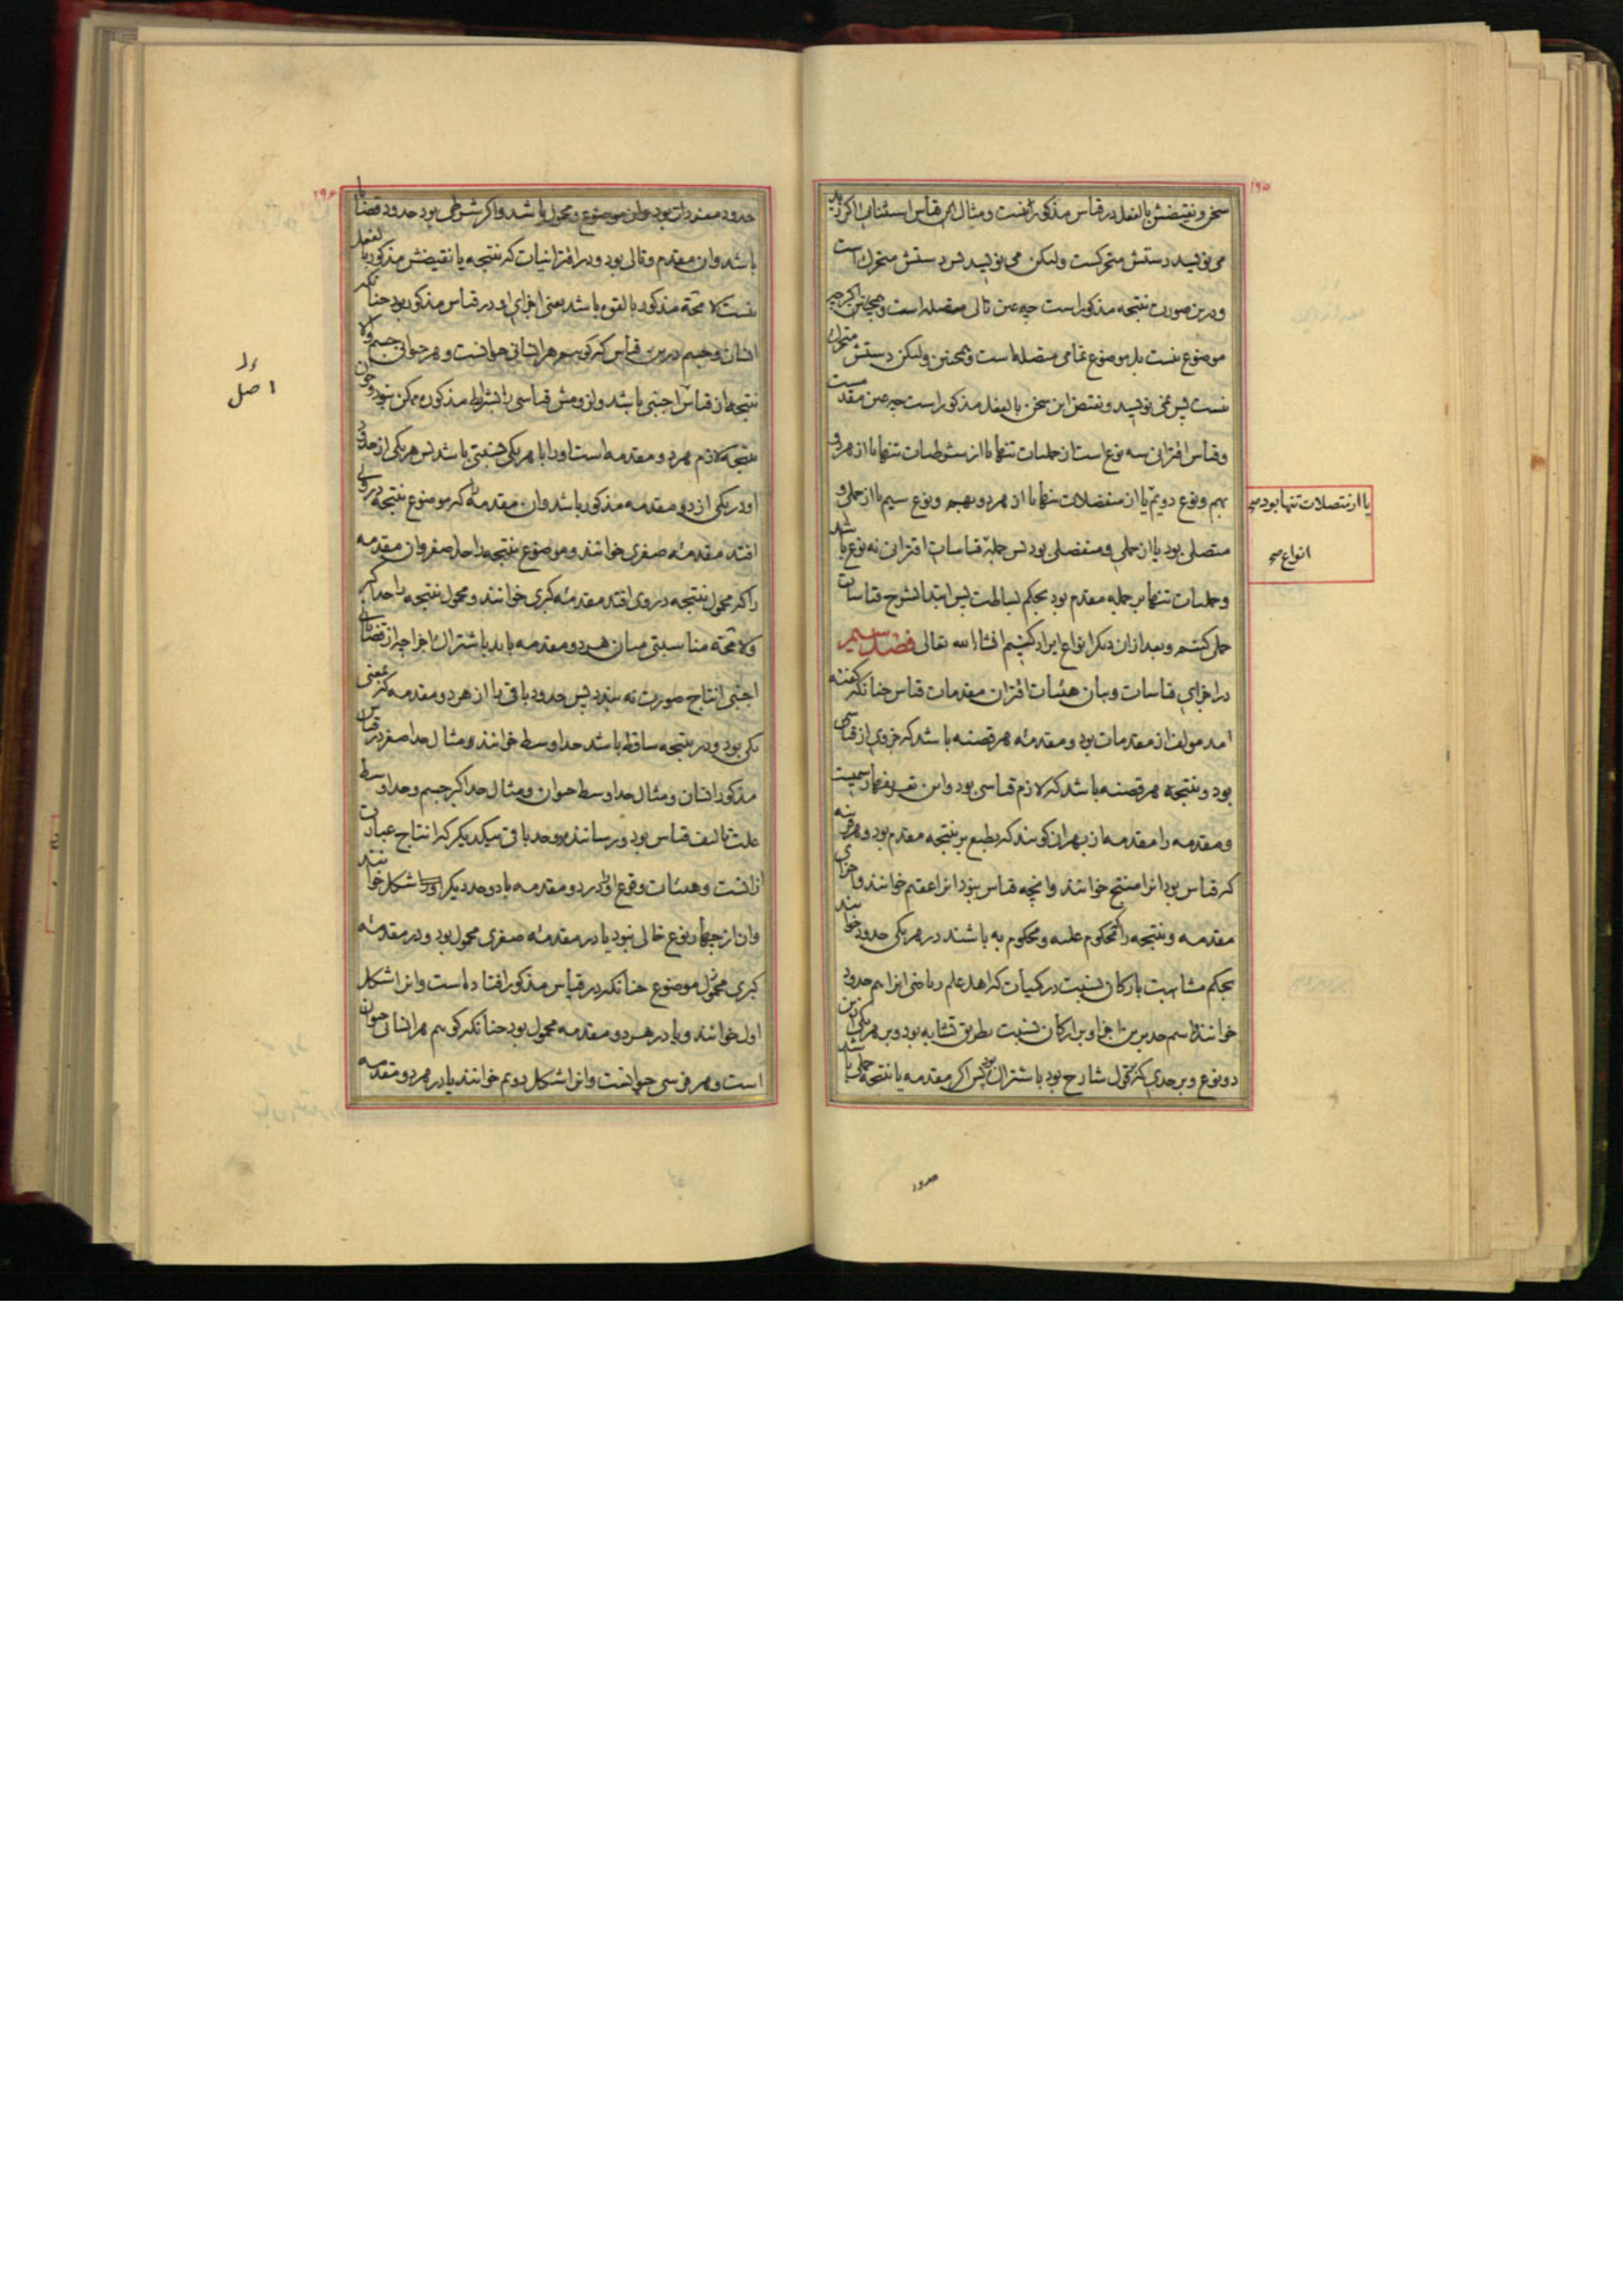 ۱۹۵
سخن و نقیضش بالفعل در قیاس مذکور نیست و مثال این قیاس استثنایی اگر زید
می نویسد دستش متحرکست ولیکن می نویسد پس دستش متحرک است
و درین صورت نتیجه مذکور است چه عین تالی متصله است و همچنین اگرچه
موضوع نیست بل موضوع تمامی متصله است و همچنین ولیکن دستش متحرک
نیست پس نمی نویسد و نقیض این سخن بالفعل مذکور است چه عین مقدمست
و قیاس اقترانی سه نوع است از حملیات تنها یا از شرطیات تنها یا از هر دو
بهم و نوع دویم یا از منفصلات تنها یا از هر دو بهم و نوع سیم یا از حملی و
متصلی بود یا از حملی و منفصلی بود پس جمله قیاسات اقترانی نه نوع باشد
و حملیات تنها بر جمله مقدم بود بحکم بساطت پس ابتدا بشرح قیاسات
حملی کنیم و بعد از ان دیگر انواع ایراد کنیم انشا الله تعالی فصل سیم
در اجزای قیاسات و بیان هیئات اقتران مقدمات قیاس چنانکه گفته
امد مولف از مقدمات بود و مقدمه هر قضیه باشد که جزوی از قیاسی
بود و نتیجه هر قضیه باشد که لازم قیاسی بود و این تعریفها رسمیست
و مقدمه را مقدمه از بهر ان گویند که بطبع بر نتیجه مقدم بود و هر قرینه
که قیاس بود انرا منتج خوانند و انچه قیاس نبود انرا عقیم خوانند و اجزای
مقدمه و نتیجه را که محکوم علیه و محکوم به باشند در هر یکی حدود خوانند
بحکم مشابهت بارکان نسبت در کمیات که اهل علم ریاضی انرا هم حدود
خوانند و اسم حد برین اجزا و بر ارکان نسبت بطریق تشابه بود و بر هر یکی ازین
دو نوع و بر حدی که قول شارح بود باشتراک پس اگر مقدمه یا نتیجه حملی باشد
یا از متصلات تنها بود صح
انواع صح
حدود
۱۹۶
حدود مفردات بود وان موضوع و محمول باشد و اگر شرطی بود حدود قضایا
باشد وان مقدم و تالی بود و در اقترانیات که نتیجه یا نقیضش مذکور بالفعل
نیست لا محته مذکور بالقوه باشد یعنی اجزای او در قیاس مذکور بود چنانکه
انسان و جسم درین قیاس که گوییم هر انسانی حیوانست و هر حیوانی جسم والا
نتیجه از قیاس اجنبی باشد و لزومش قیاسی را بشرایط مذکوره ممکن نبود و چون
نتیجه لازم هر دو مقدمه است او را با هر یکی نسبتی باشد پس هر یکی از حدود
او در یکی از دو مقدمه مذکور باشد وان مقدمه که موضوع نتیجه در وی
افتد مقدمه صغری خوانند و موضوع نتیجه را حد اصغر وان مقدمه
را که محمول نتیجه در وی افتد مقدمه کبری خوانند و محمول نتیجه را حد اکبر
ولا محته مناسبتی میان هر دو مقدمه باید باشتراک اجزا چه از قضایای
اجنبی انتاج صورت نه بندد پس حدود باقی را از هر دو مقدمه که بمعنی
یکی بود و در نتیجه ساقط باشد حد اوسط خوانند و مثال حد اصغر در قیاس
مذکور انسان و مثال حد اوسط حیوان و مثال حد اکبر جسم و حد اوسط
علت تالیف قیاس بود و رساننده دو حد باقی بیکدیگر که انتاج عبارت
ازانست و هیئات وقوع او در دو مقدمه با دو حد دیگر اشکال خوانند
وان از چهار نوع خالی نبود یا در مقدمه صغری محمول بود و در مقدمه
کبری موضوع چنانکه در قیاس مذکور افتاده است وانرا شکل
اول خوانند و یا در هر دو مقدمه محمول بود چنانکه گوییم هر انسانی حیوان
است و هر فرسی حیوانست وانرا شکل دویم خوانند یا در هر دو مقدمه
اصل